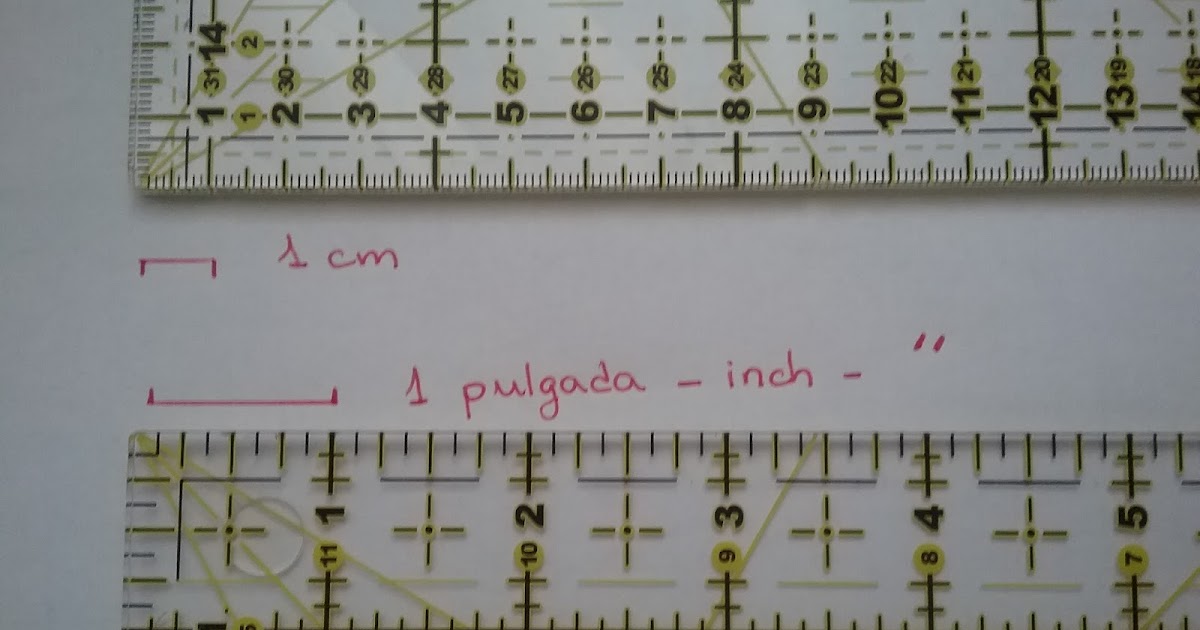 14 2
31 30 29 28 27 26 25 24 23 22 21 20 19 18
1 1 2 3 4 5 6 7 8 9 10 11 12 13 14
1 cm
1 pulgada - inch - "
1 2 3 4 5
11 10 9 8 7